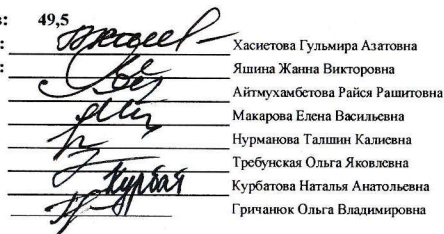 в: 49,5
: Хасиетова Гульмира Азатовна
: Яшина Жанна Викторовна
Айтмухамбетова Райся Рашитовна
Макарова Елена Васильевна
Нурманова Талшин Калиевна
Требунская Ольга Яковлевна
Курбат Курбатова Наталья Анатольевна
Гричанюк Ольга Владимировна